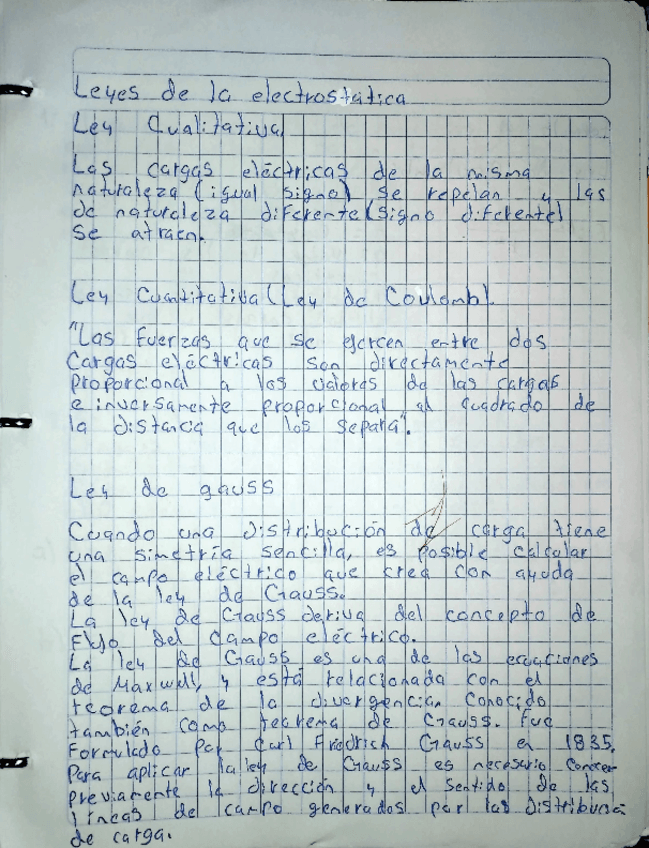 Leyes de la electrostática
Ley Cualitativa
Las cargas eléctricas de la misma
naturaleza (igual signo) se repelan y las
de naturaleza diferente (signo diferente)
se atraen.
Ley Cuantitativa (Ley de Coulomb).
"Las fuerzas que se ejercen entre dos
Cargas eléctricas son directamente
proporcional a los valores de las cargas
e inversamente proporcional al cuadrado de
la distancia que los separa".
Ley de gauss
Cuando una distribución de carga tiene
una simetría sencilla, es posible calcular
el campo eléctrico que crea con ayuda
de la ley de Gauss.
La ley de Gauss deriva del concepto de
Flujo del campo eléctrico.
La ley de Gauss es una de las ecuaciones
de Maxwell, y está relacionada con el
teorema de la divergencia, Conocido
también como teorema de Gauss. Fue
Formulado por Carl Friedrich Gauss en 1835.
Para aplicar la ley de Gauss es necesario Conocer
previamente la dirección y el sentido de las
líneas de campo generados por las distribución
de carga.